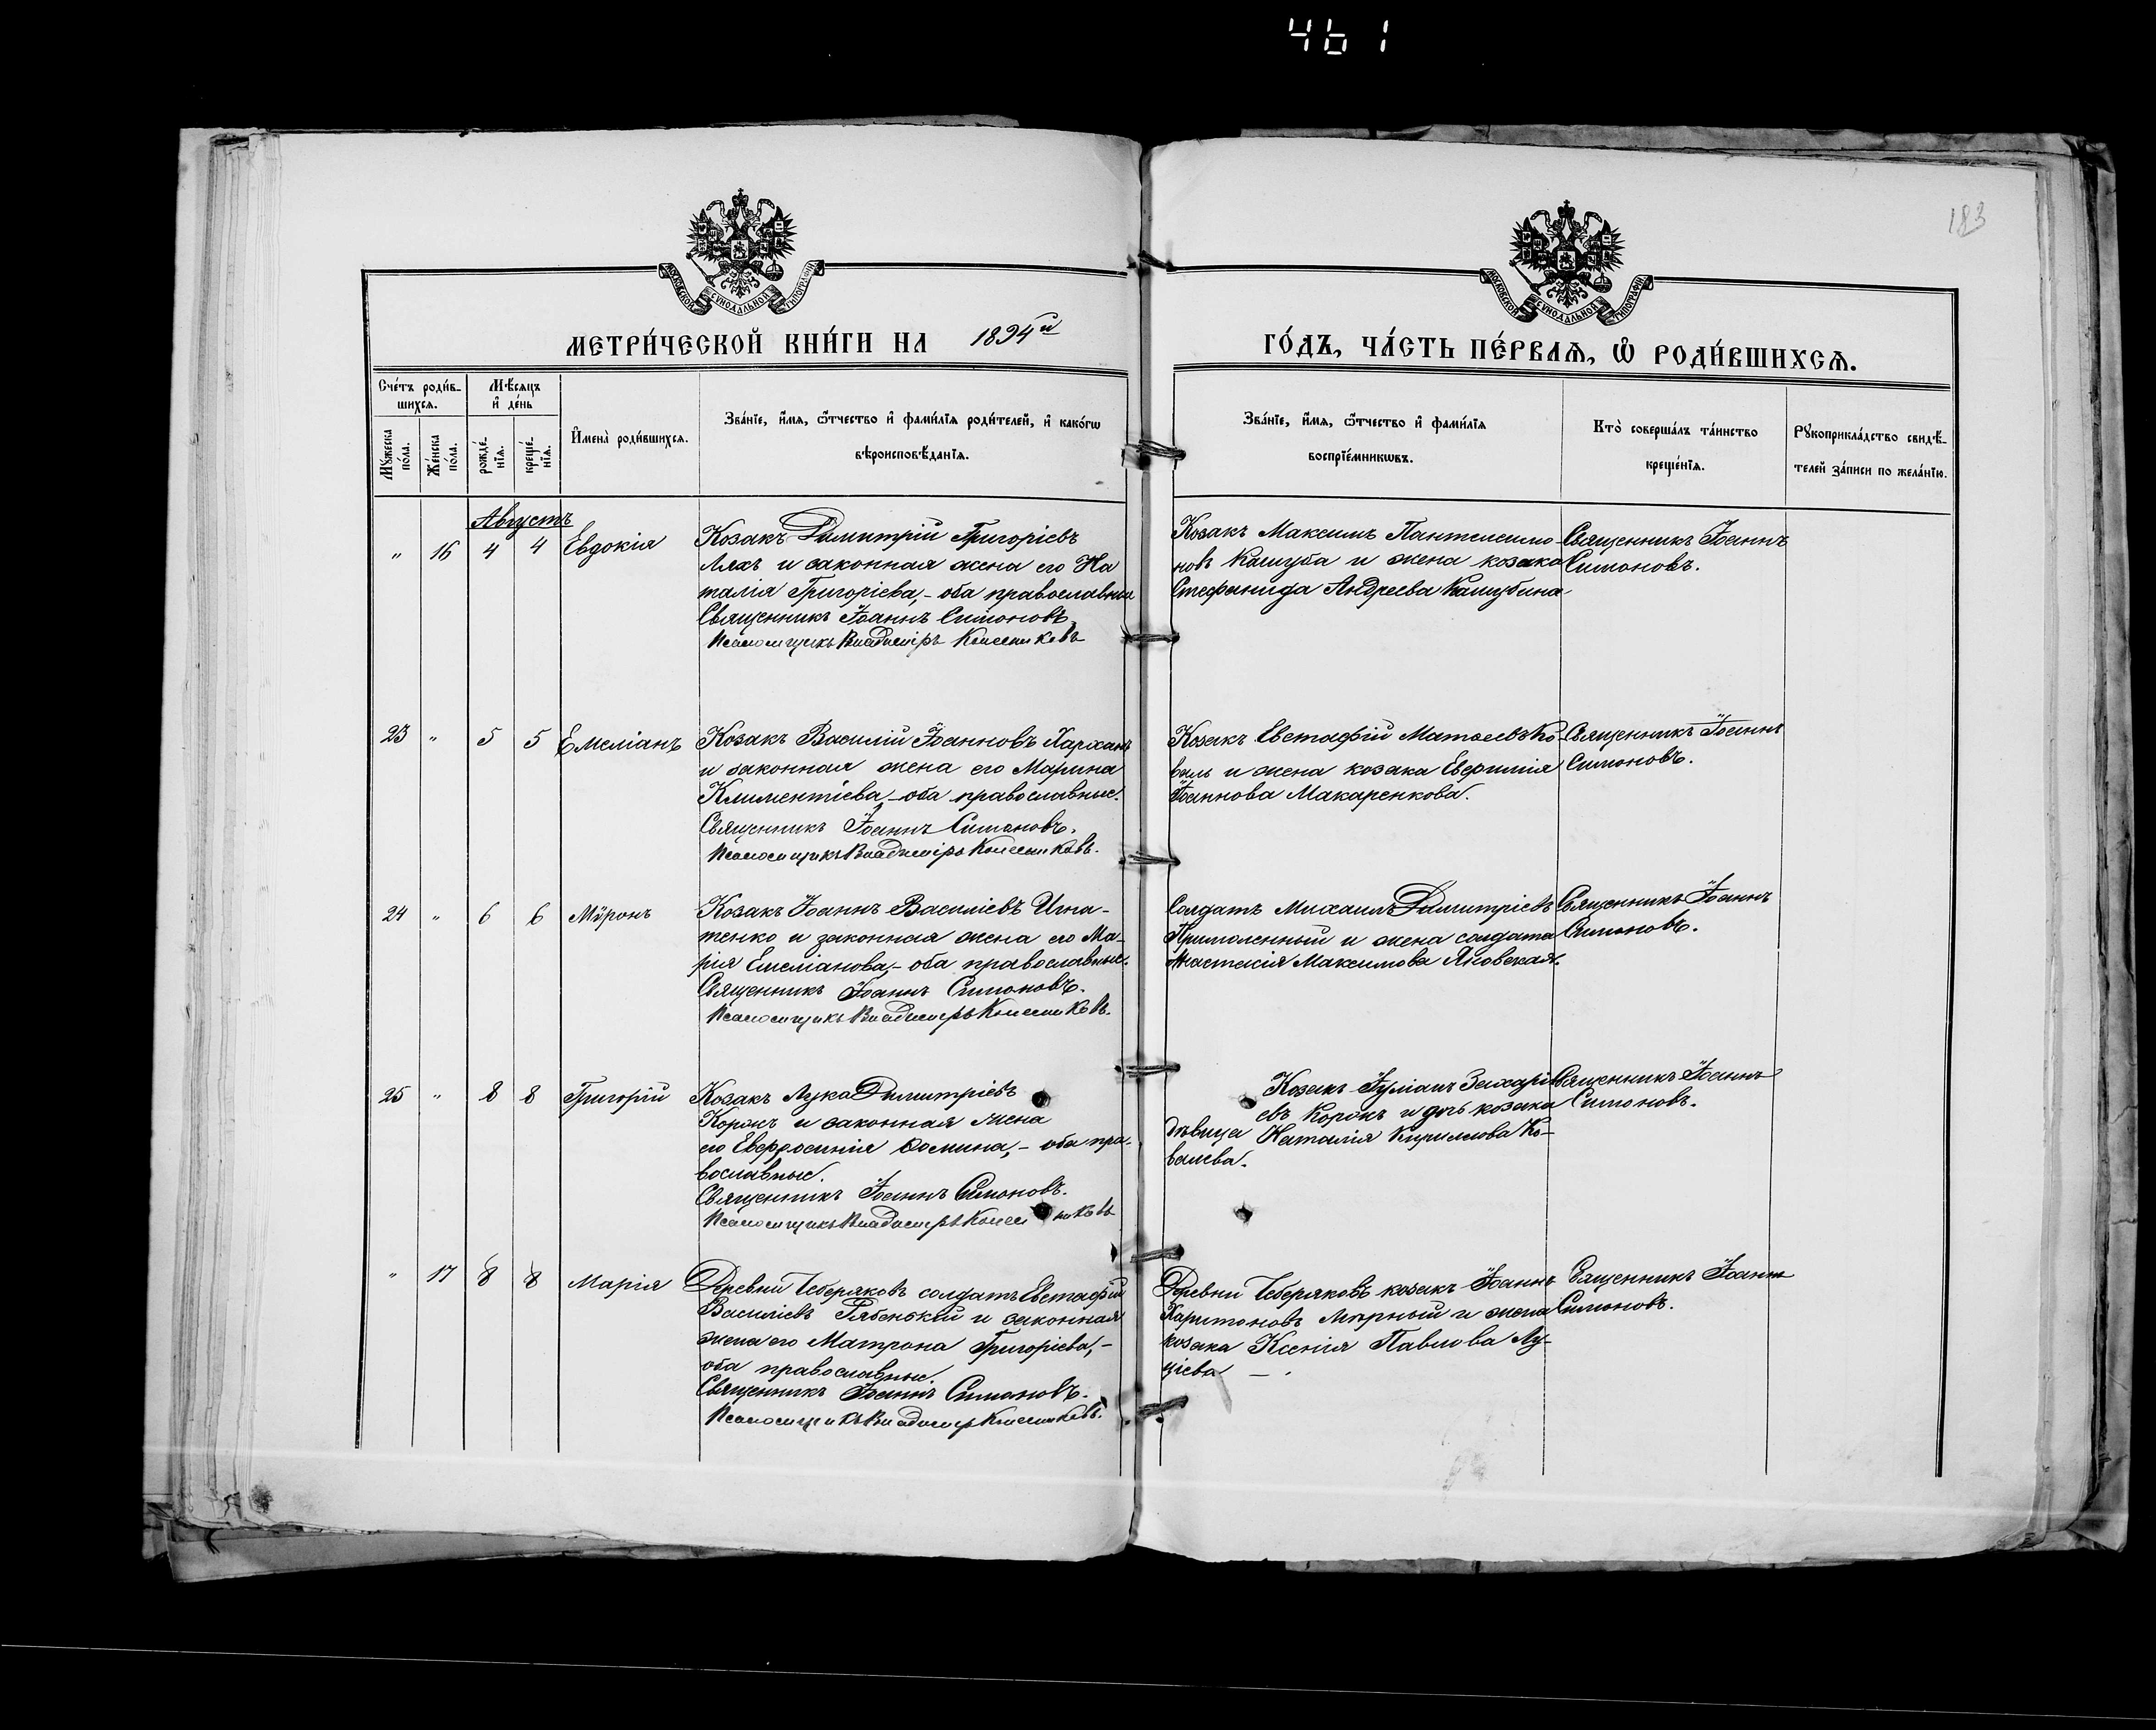 461
183
МОСКОВСКОЙ СУНОДАЛЬНОЙ ТИПОГРАФІИ
МОСКОВСКОЙ СУНОДАЛЬНОЙ ТИПОГРАФІИ
МЕТРИ́ЧЕСКОЙ КНИ́ГИ НА 1894й
ГО́ДЪ, ЧА́СТЬ ПЕ́РВАѦ, Ѽ РОДИ́ВШИХСѦ.
Сче́тъ роди́в-
шихсѧ.
Мѣ́сяцъ
и҆ де́нь
Мꙋ́жеска
по́ла.
Же́нска
по́ла.
рожде́-
нїѧ.
креще́-
нїѧ.
И҆мена̀ роди́вшихсѧ.
Зва́нїе, и҆́мѧ, ѻ҆́тчество и҆ фами́лїѧ роди́телей, и҆ како́гѡ
вѣроисповѣ́данїѧ.
Зва́нїе, и҆́мѧ, ѻ҆́тчество и҆ фами́лїѧ
воспрїе́мникѡвъ.
Кто̀ соверша́лъ та́инство
креще́нїѧ.
Рꙋкоприкла́дство свидѣ́-
телей за́писи по жела́нїю.
Августъ
" 16 4 4 Евдокія
Козакъ Димитрій Григоріевъ
Ляхъ и законная жена его На
талія Григоріева,- оба православные
Священникъ Іоаннъ Симоновъ.
Псаломщикъ Владиміръ
Козакъ Максимъ Пантелеимо-
новъ Кашуба и жена козака
Стефанида Андреева Кашубина
Священникъ Іоаннъ
Симоновъ.
23 " 5 5 Емеліанъ
Козакъ Василій Іоанновъ Харханъ
и законная жена его Марина
Климентіева,- оба православные.
Священникъ Іоаннъ Симоновъ.
Псаломщикъ Владиміръ
Козакъ Евстафій Матѳеевъ Ко-
валь и жена козака Евфимія
Іоаннова Макаренкова.
Священникъ Іоаннъ
Симоновъ.
24 " 6 6 Мѵронъ
Козакъ Іоаннъ Василіевъ Игна-
тенко и законная жена его Ма-
рія Емеліанова,- оба православные.
Священникъ Іоаннъ Симоновъ.
Псаломщикъ Владиміръ
Солдатъ Михаилъ Димитріевъ
Примоленный и жена солдата
Анастасія Максимова Яновская.
Священникъ Іоаннъ
Симоновъ.
25 " 8 8 Григорій
Козакъ Лука Димитріевъ
Коронъ и законная жена
его Евфросинія Ѳомина,- оба пра-
вославные.
Священникъ Іоаннъ Симоновъ.
Псаломщикъ Владиміръ
Козакъ Іуліанъ Захарі
евъ Коронъ и дочь козака
дѣвица Наталія Кириллова Ко-
валева.
Священникъ Іоаннъ
Симоновъ.
" 17 8 8 Марія
Деревни Чеберяковъ солдатъ Евстафій
Василіевъ Рябенькій и законная
жена его Матрона Григоріева,-
оба православные.
Священникъ Іоаннъ Симоновъ.
Псаломщикъ Владиміръ
Деревни Чеберяковъ козакъ Іоаннъ
Харитоновъ Мирный и жена
козака Ксенія Павлова Лу-
ціева
Священникъ Іоаннъ
Симоновъ.